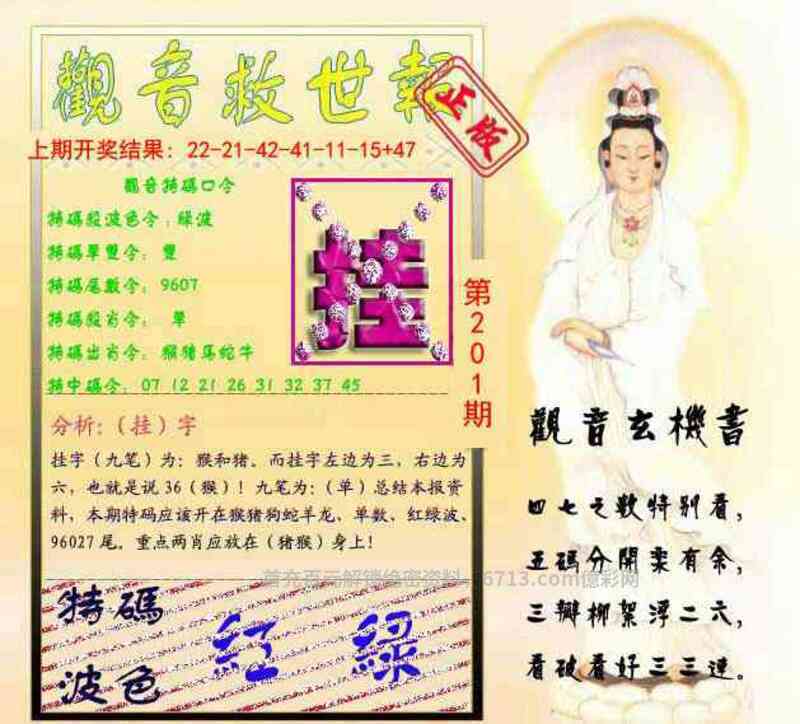 觀音救世報
正版
上期开奖结果：22-21-42-41-11-15+47
觀音特碼口令
特碼段波色令：綠波
特碼單雙令：雙
特碼尾數令：9607
特碼段肖令：單
特碼出肖令：猴猪馬蛇牛
特中碼令：07 12 21 26 31 32 37 45
挂
第201期
分析:（挂）字
挂字（九笔）为：猴和猪。而挂字左边为三，右边为
六，也就是说36（猴）！九笔为：（单）总结本报资
料，本期特码应该开在猴猪狗蛇羊龙、单数、红绿波、
96027尾。重点两肖应放在（猪猴）身上！
特碼
波色
紅 綠
觀音玄機書
四七之數特别看，
五碼分開案有余，
三瓣柳絮浮二六，
看破看好三三連。